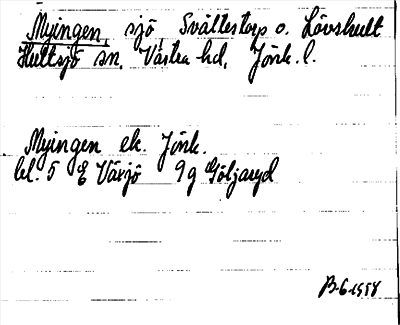 Myingen, sjö, Svällestorp o. Lövshult
Hultsjö sn, Västra hd, Jönk. l.
Myingen ek. Jönk.
bl. 5 E Växjö 9g Göljaryd
B-6-1958